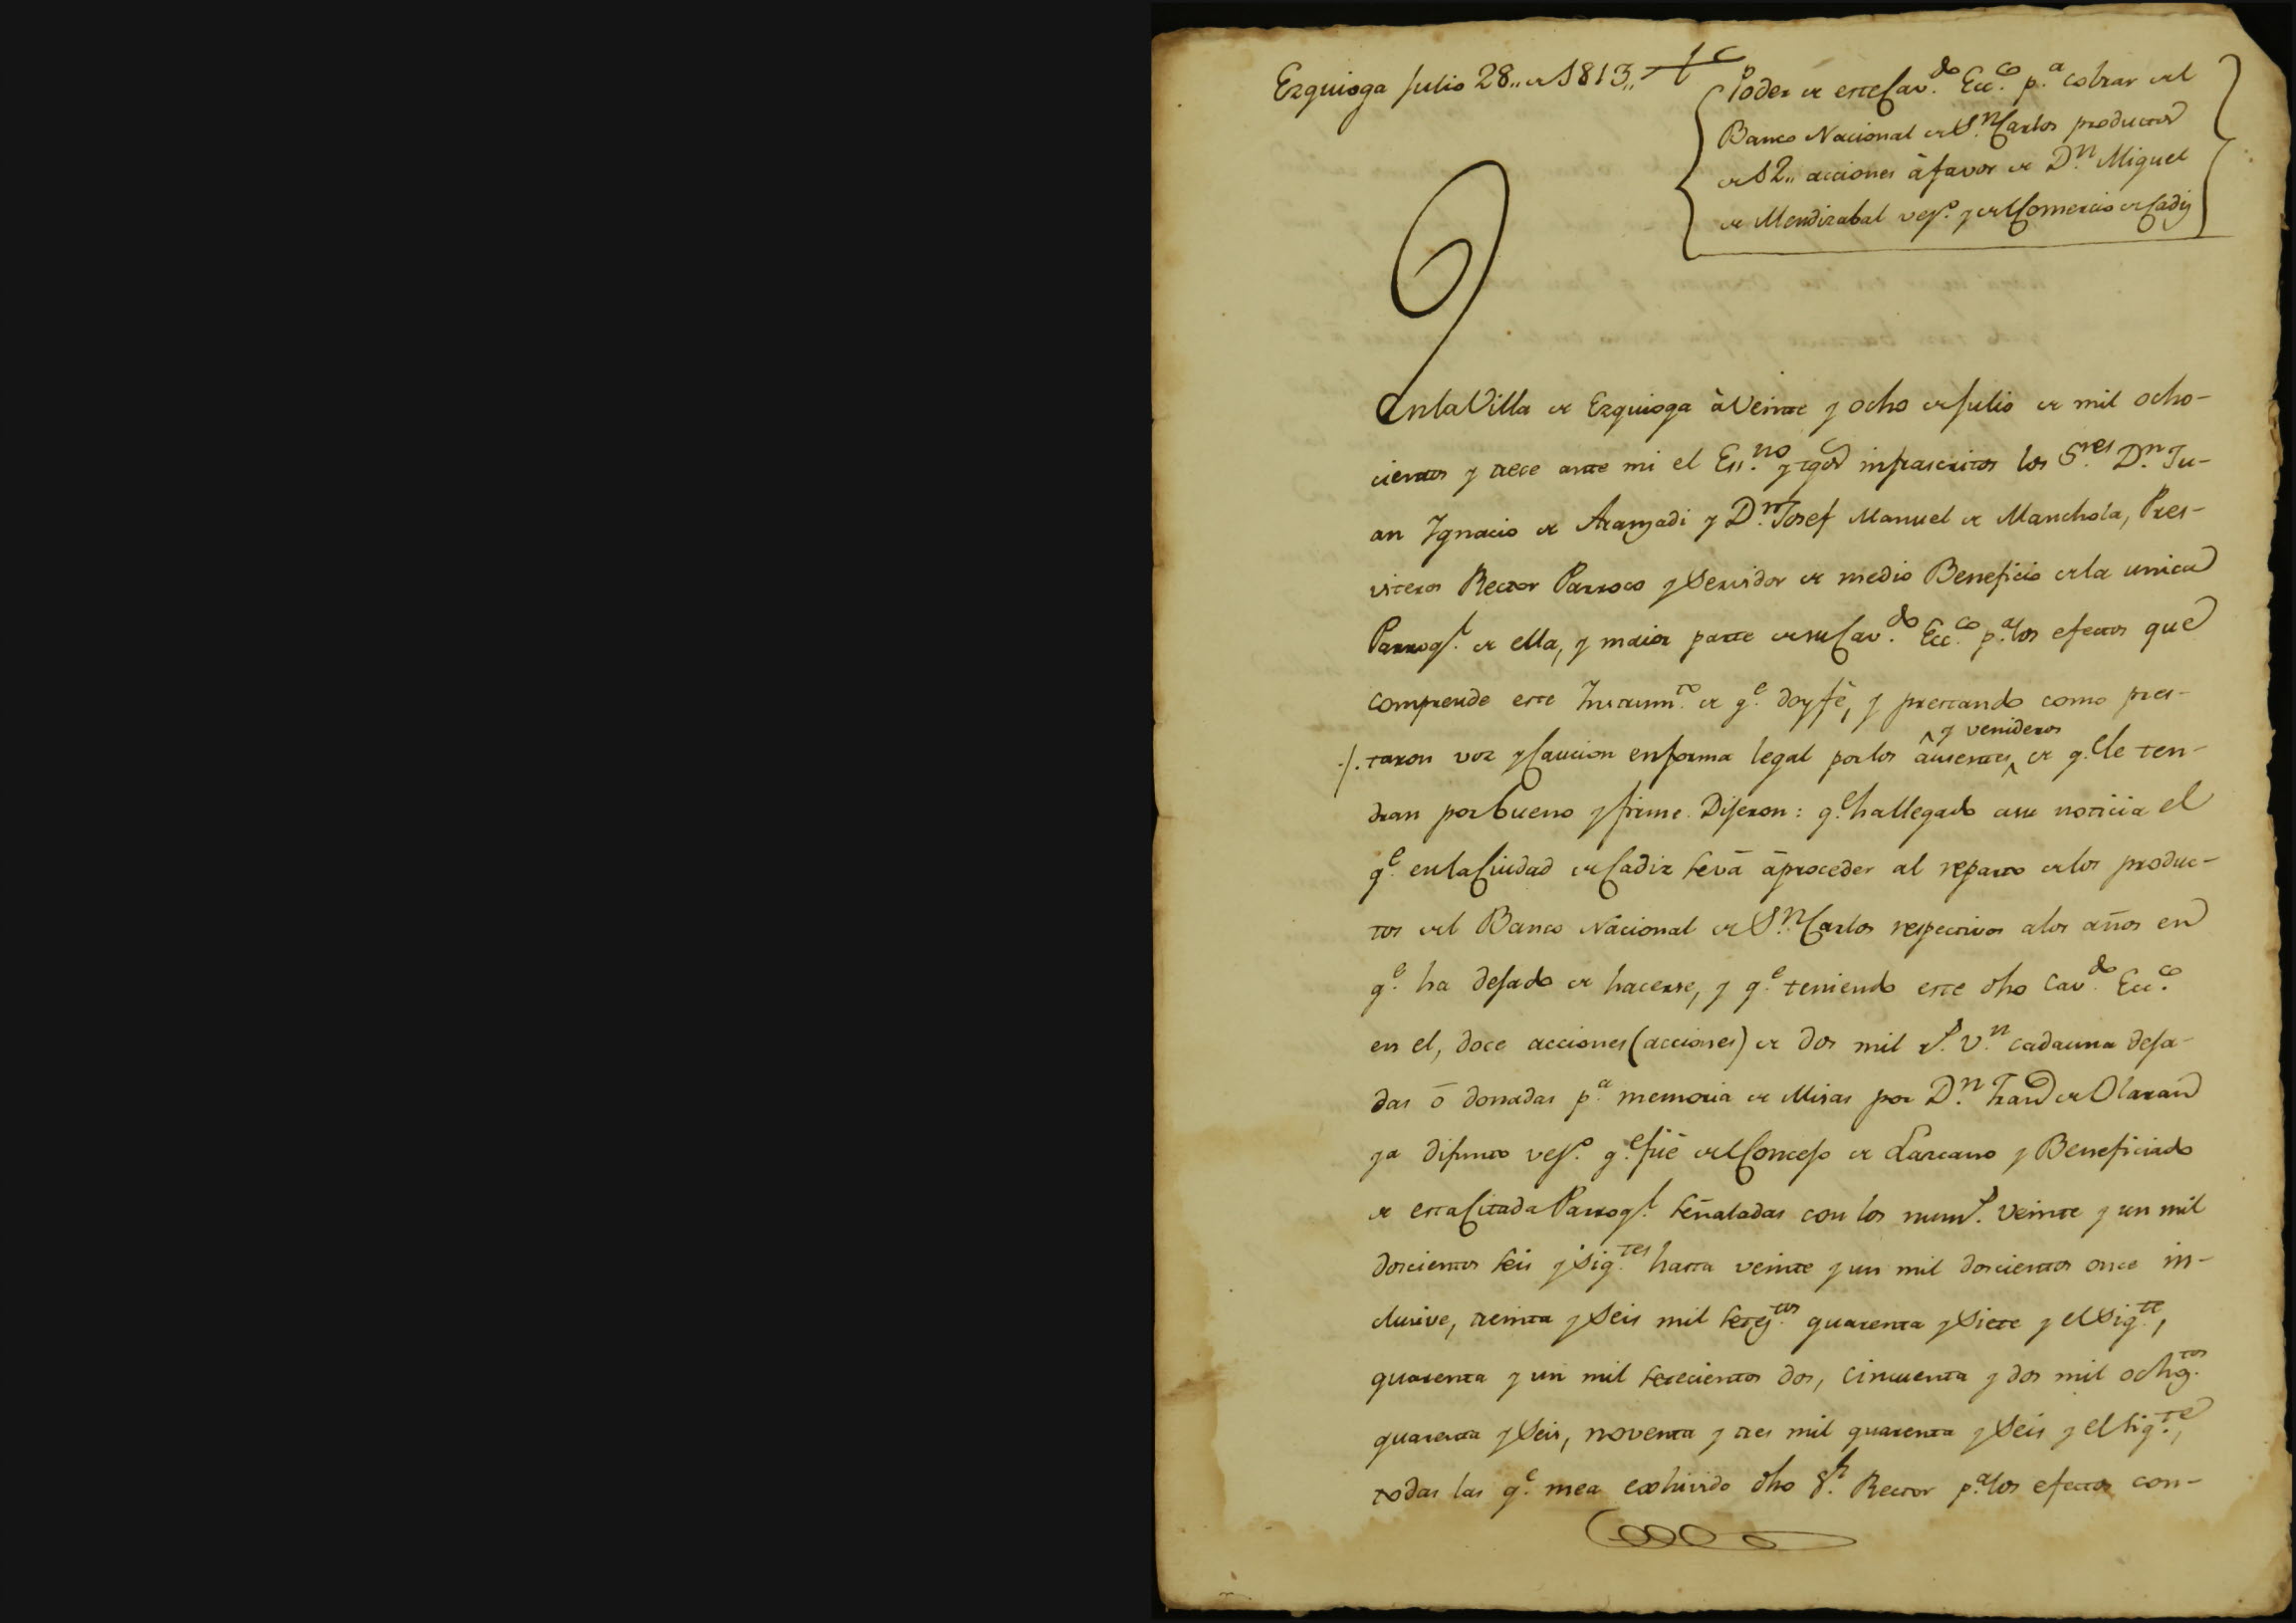 Ezquioga Julio 28,, de 1813,,
Poder de este Cav.do Ecc.co p.a cobrar del
Banco Nacional de S.n Carlos productos
de 12,, acciones à favor de D.n Miguel
de Mendizabal vez.o y del Comercio de Cadiz
En la Villa de Ezquioga à Veinte y ocho de Julio de mil ocho-
cientos y trece ante mi el Ess.no y tgos infrascritos los S.res D.n Ju-
an Ygnacio de Aranzadi y D.n Josef Manuel de Manchola, Pres-
viteros Rector Parroco y Servidor de medio Beneficio de la unica
Parroq.l de ella, y maior parte de su Cav.do Ecc.co p.a los efectos que
comprende este Instrum.to de q.e doy fè, y prestando como pres-
./. taron voz y Caucion en forma legal por los ausentes ^y venideros^ de q.e le ten-
dran por bueno y firme Dijeron: q.e ha llegado a su noticia el
q.e en la Ciudad de Cadiz se vá á proceder al reparto de los produc-
tos del Banco Nacional de S.n Carlos respectivos a los años en
q.e ha dejado de hacerse, y q.e teniendo este dho Cav.do Ecc.co
en el, doce acciones (acciones) de dos mil r.s v.n cada una deja-
das ó donadas p.a memoria de Misas por D.n Fran.co de Olaran
ya difunto vez.o q.e fué del Concejo de Lazcano y Beneficiado
de esta Citada Parroq.l señaladas con los num.s veinte y un mil
doscientos seis y sig.tes hasta veinte y un mil doscientos once in-
clusive, treinta y seis mil setez.tos quarenta y siete y el sig.te,
quarenta y un mil setecientos dos, cincuenta y dos mil ochoz.tos
quarenta y seis, noventa y tres mil quarenta y seis y el sig.te,
todas las q.e me a exhivido dho S.r Rector p.a los efectos con-